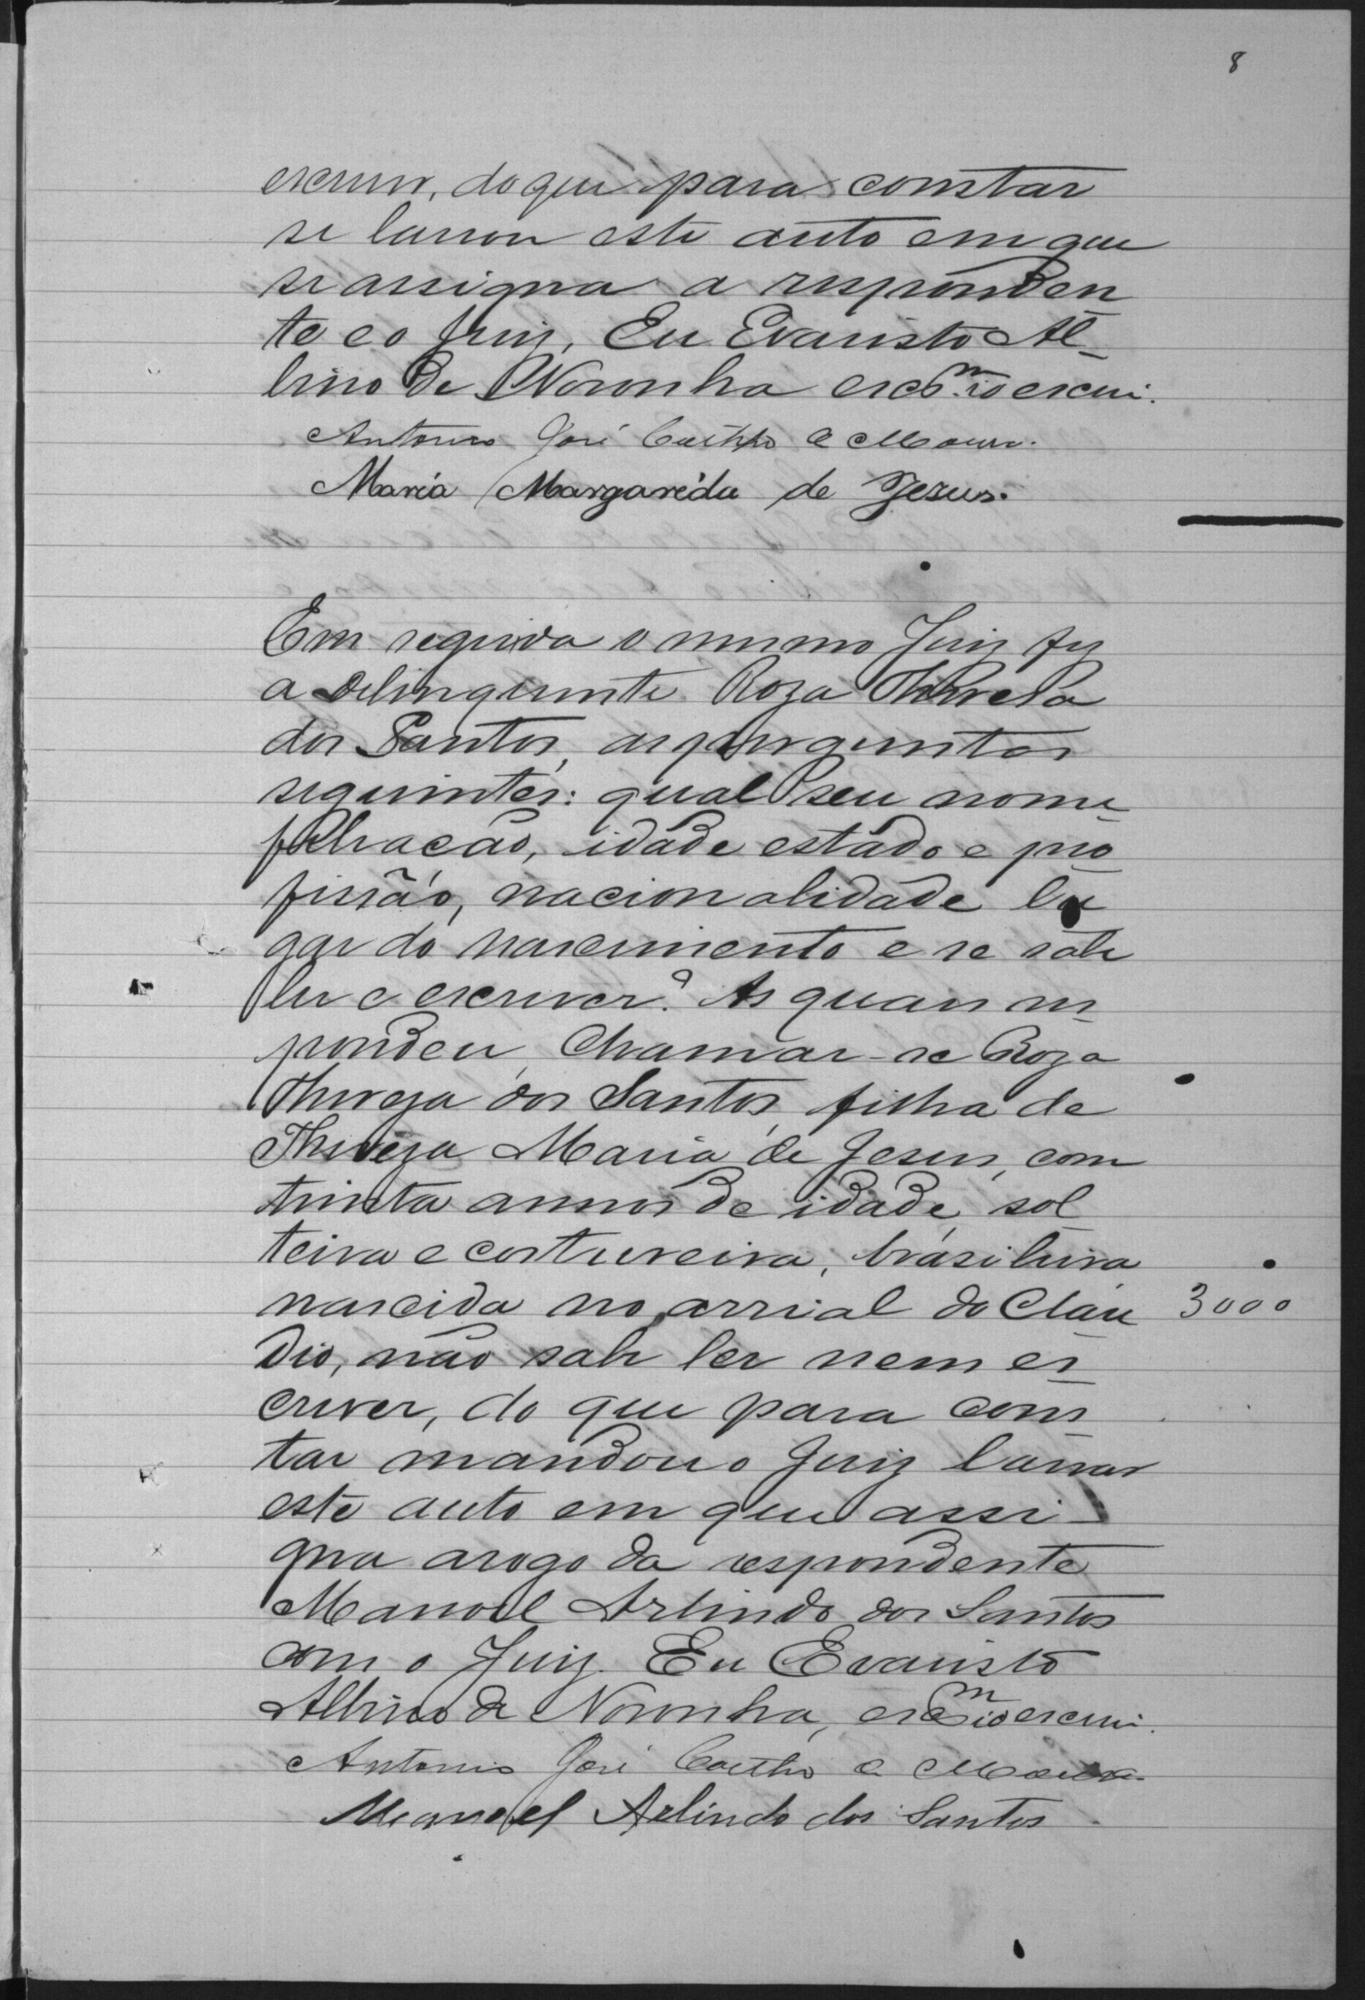 8
escrever, do que para constar
se lavrou este auto em que
se assigna a responden
te e o Juiz, Eu Evaristo Al-
bino de Noronha escrm.io escrevi.
Antonio José Coelho e Moura.
Maria Margarida de Jezus.
Em seguida o mesmo Juiz fez
a delinquente Roza Thereza
dos Santos, as perguntas
seguintes: qual seu nome
filiacão, idade estado e pro
fissão, nacionalidade lu
gar do nascimento e se sabe
ler e escrever? As quais res
pondeu chamar-se Roza
Thereza dos Santos, filha de
Thereza Maria de Jesus, com
trinta annos de idade, sol
teira e costureira, brazileira
nascida no arrial do Clau
dio, não sabe ler nem es
crever, do que para cons
tar mandou o Juiz lavrar
este auto em que assi-
gna arogo da respondente
Manoel Arlindo dos Santos
com o Juiz. Eu Evaristo
Albino de Noronha, escrm.io escrevi.
Antonio José Coelho e Moura
Manoel Arlindo dos Santos
3000